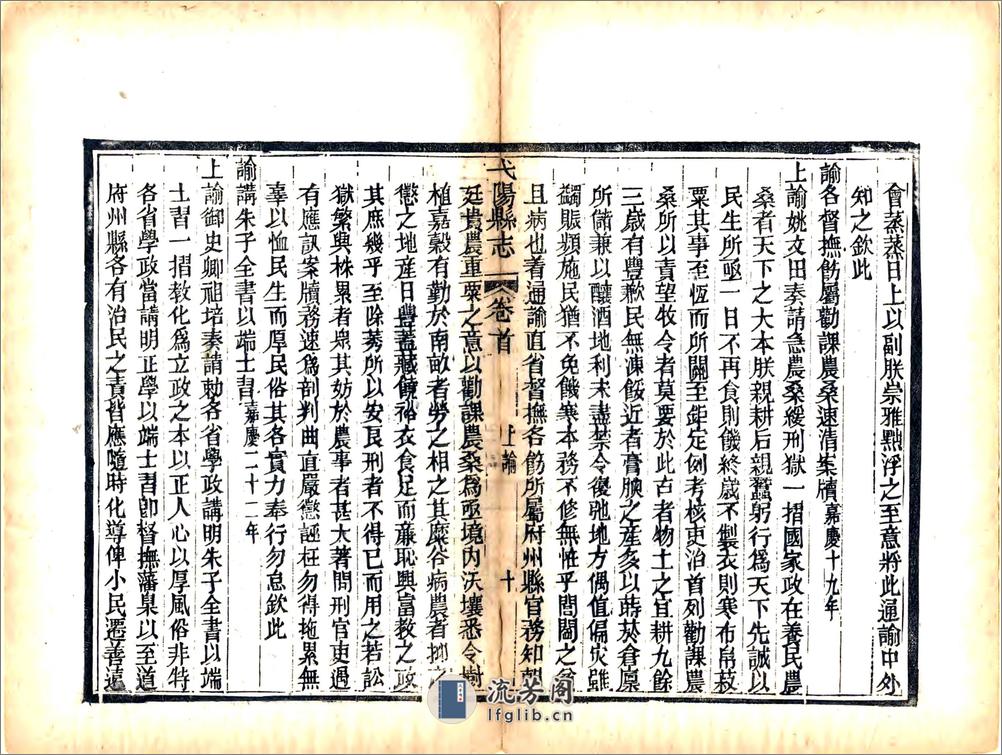 會蒸蒸日上以副朕崇雅黜浮之至意將此通諭中外
知之欽此
諭各督撫飭屬勸課農桑速清案牘嘉慶十九年
上諭姚文田奏請急農桑緩刑獄一摺國家政在養民農
桑者天下之大本朕親耕后親蠶躬行為天下先誠以
民生所亟一日不再食則饑終歲不製衣則寒布帛菽
粟其事至恆而所關至鉅定例考核吏治首列勸課農
桑所以責望牧令者莫要於此古者物土之宜耕九餘
三歲有豐歉民無凍餒近者膏腴之產多以蒔菸倉廩
所儲兼以釀酒地利未盡禁令復弛地方偶值偏災雖
蠲賑頻施民猶不免饑寒本務不修無惟乎閭閻之
且病也著通諭直省督撫各飭所屬府州縣官務知朝
弋陽縣志
卷首
上諭
十
廷貴農重粟之意以勸課農桑為亟境內沃壤悉令樹
植嘉穀有勤於南畝者勞之相之其糜谷病農者抑之
懲之地產日豐蓋藏饒裕衣食足而廉恥興富教之政
其庶幾乎至除莠所以安良刑者不得已而用之若訟
獄繁興株累者眾其妨於農事者甚大著問刑官吏過
有應訊案牘務速為剖判曲直嚴懲誣枉勿得拖累無
辜以恤民生而厚民俗其各實力奉行勿怠欽此
諭講朱子全書以端士習嘉慶二十一年
上諭御史卿祖培奏請勅各省學政講明朱子全書以端
士習一摺教化為立政之本以正人心以厚風俗非特
各省學政當講明正學以端士習卽督撫藩臬以至道
府州縣各有治民之責皆應隨時化導俾小民遷善遠
流芳閣
lfglib.cn